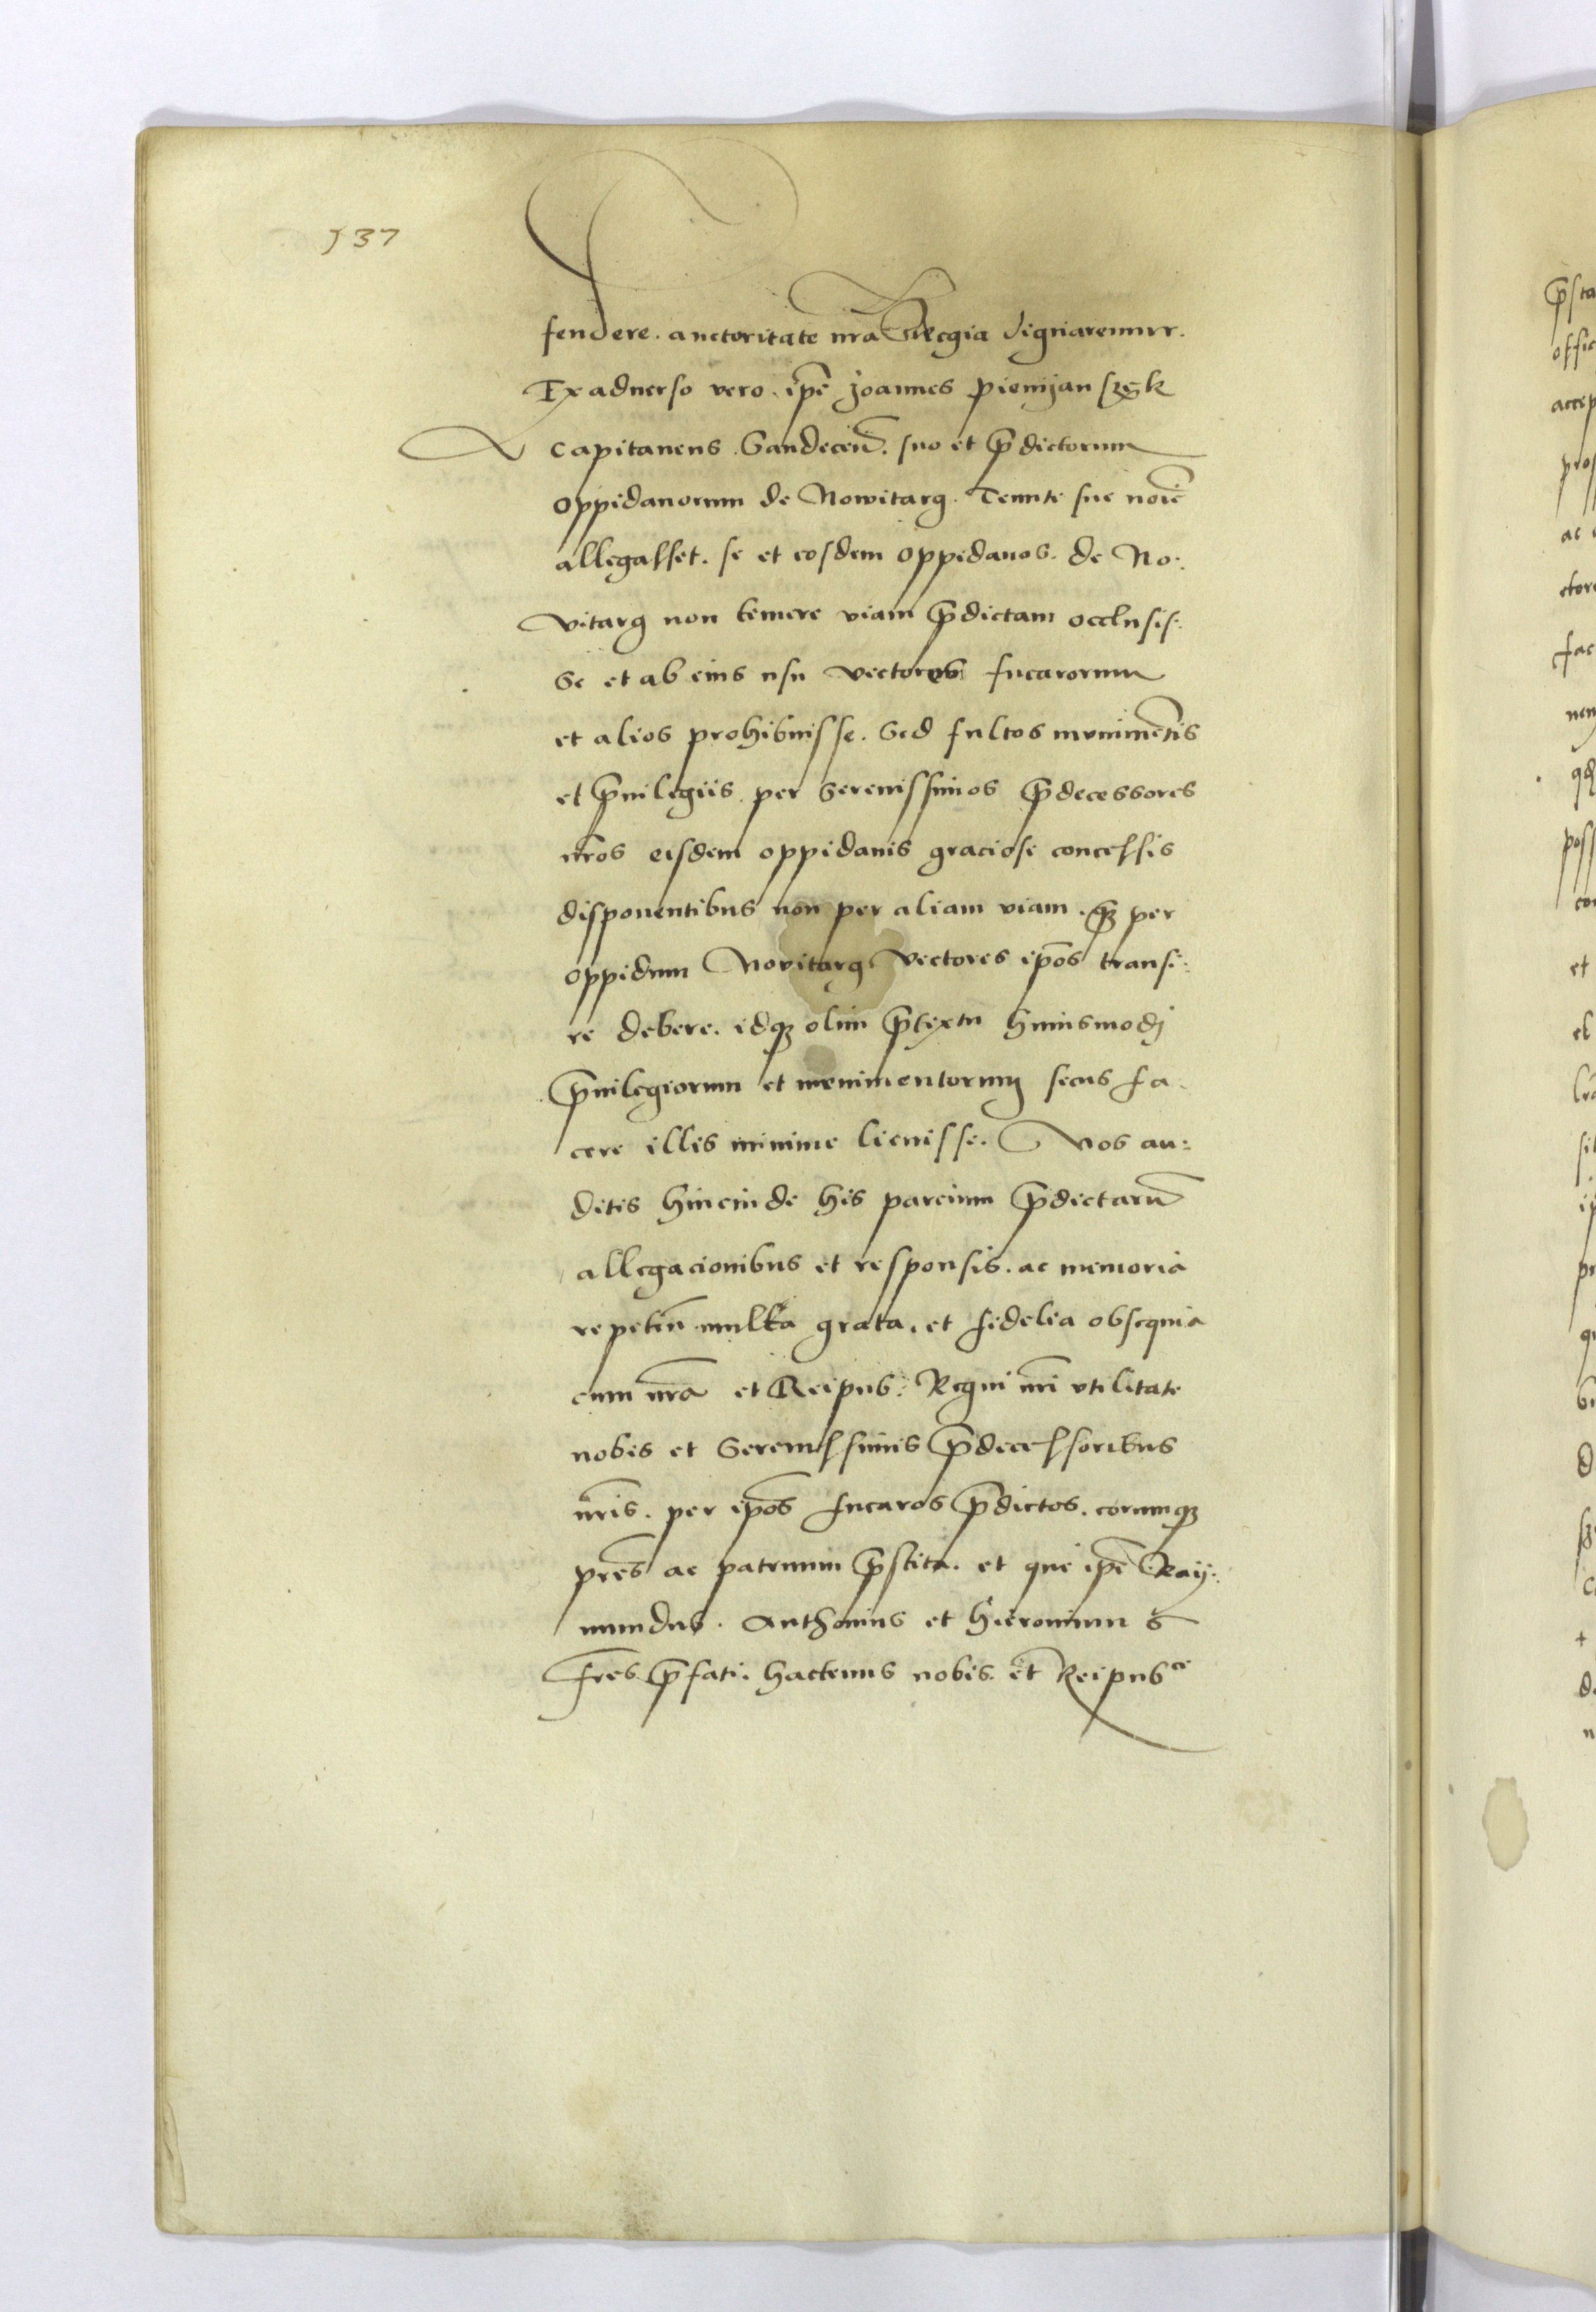 137
fendere. auctoritate nrã Regia dignaremur.
Ex aduerso vero. ipẽ Joannes pienijanszgk
Capitaneus Sandeceñ. suo et p̃dictorum
oppidanorum de Nowitarg. Tenute sue noiẽ
allegasset. se et eosdem oppidanos. de No:
vitarg non temere viam p̃dictam occlusis:
se et ab eius usu vectores fucarorum
et alios prohibuisse. Sed fultos munimẽtis
et p̃uilegiis per Serenissimos p̃decessores
nr̃os eisdem oppidanis graciose concessis
disponentibus non per aliam viam. qz per
oppidum Novitarg. Vectores ip̃os transi:
re debere. idqz olim p̃textu huiusmodj
p̃uilegiorum et munimentorum secus fa.
cere illis minime licuisse. Nos au:
ditis hincinde his parcium p̃dictarũ
allegacionibus et responsis. ac memoria
repetiñ multa grata. et fidelia obsequia
cum nr̃a et Reipub: Regni nr̃i vtilitate
nobis et Serenissimis p̃decessoribus
nr̃is. per ip̃os fucaros p̃dictos. eorumqz
pr̃es ac patruum p̃stita. et que ip̃e Ray:
mundus. Anthonius et hieronimus
fr̃es p̃fati. hactenus nobis. et Reipubce